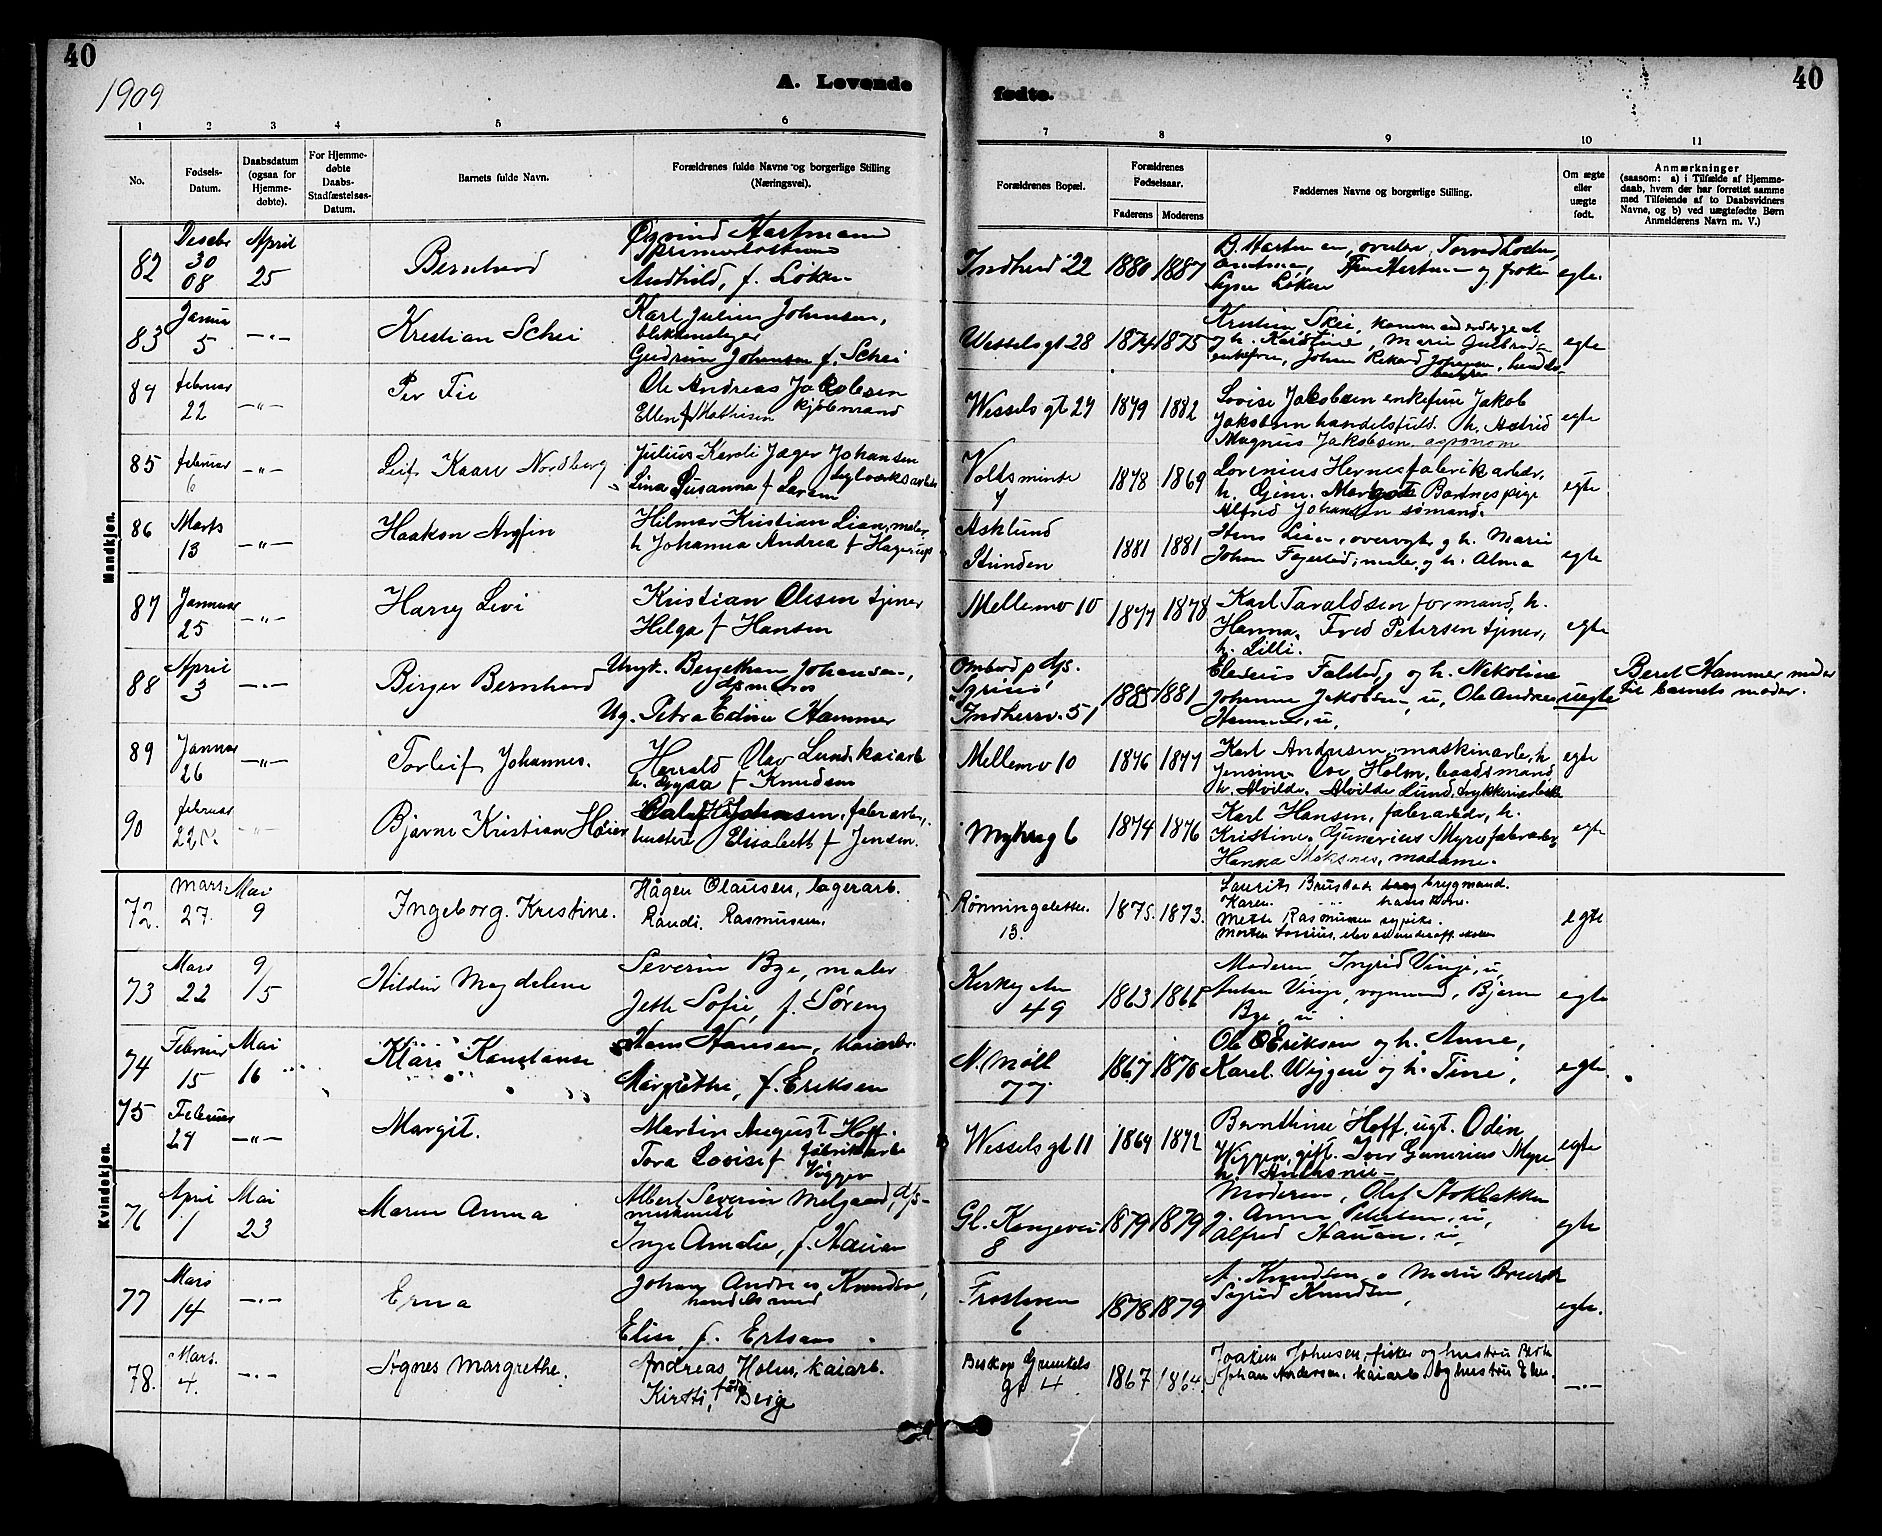 40
1909
A. Levende
fødte.
40
1 2 3 4 5 6 7 8 9 10 11
No.
Fødsels-
Datum.
Daabsdatum
(ogsaa for
Hjemme-
døbte).
For Hjemme-
døbte
Daabs-
Stadfæstelses-
Datum.
Barnets fulde Navn.
Forældrenes fulde Navne og borgerlige Stilling
(Næringsvei).
Forældrenes Bopæl.
Forældrenes
Fødselsaar.
Faderens Moderens
Faddernes Navne og borgerlige Stilling.
Om ægte
eller
uægte
født.
Anmærkninger
(saasom: a) i Tilfælde af Hjemme-
daab, hvem der har forrettet samme
med Tilføiende af to Daabsvidners
Navne, og b) ved uægtefødte Børn
Anmelderens Navn m. V.)
Mandkjøn.
82 Decbr 30 08 April 25 Bernhard
Øyvind Hartmann
Andhild, f. Løken
Indherd 22 1880 1887 egte.
83 Januar 5 —"— Kristian Schei
Karl Julius Johansen,
blikkenslager
Gudrun Johansen f. Schei
Wesselsgt 28 1874 1875 egte
84 februar 22 —"— Per Fie
Ole Andreas Jakobsen
Ellen f Mathisen kjøbmand
Wessels gt 24 1879 1882
Lovise Jakobsen enkefrue Jakob
Jakobsen handelsfuld. h. Astrid
Magnus Jakobsen agronom
egte
85 februar 6 —"— Leif Kaare Nordberg
Julius Karoli Jæger Johansen
Lina Susanna f Larsen
Voldsminde 7 1878 1869
Lorenius Hernes fabrikarbdr,
h. Gine. Margot Bartnes pige
Alfred Johansen sømand.
egte
86 Marts 13 —"— Haakon Arnfin
Hilmar Kristian Lian, maler,
h Johanna Andrea f Hagerup
Asklund
Stranden 1881 1881
Jens Lian, overvogter g h. Marie
Johan Fagerlid, maler, og h. Alma
egte
87 Januar 25 —"— Harry Levi
Kristian Olesen tjener
Helga f Hansen
Mellemv 10 1877 1878
Karl Taraldsen formand, h.
Hanna. Fred Petersen tjener,
h. Lilli.
egte
88 April 3 —"— Birger Bernhard
Ungk. Johansen,
Ug. Petra Edine Hammer
Ombord p d/s.
Sirius
Indherrsv. 51 1885 1881
Falstad, og h. Nikoline
Johanne Jakobsen, u, Ole Andreas
Hammer, u,
uegte
Beret Hammer moder
til barnets moder.
89 Januar 26 —"— Torleif Johannes.
Harald Olav Lund kaiarb
h. Aysa f Knudsen
Mellemv 10 1876 1877
Karl Andersen, maskinarb, h.
Jensine. Ove Holm, baadsmand,
h. Alvilde. Alvilde Lund, trykkeriarbeide
egte
90 februar 22 Bjarne Kristian Høier
Oalaf Johansen, fabrarb.,
hustru Elisabeth f Jensen.
Nybrog 6 1874 1876
Karl Hansen, fabrarbdr, h.
Kristine. Gunerius Myre fabrarb,
Hanna Moksnes, madame.
egte
Kvindekjøn.
72. Mars 27. Mai 9 Ingeborg Kristine.
Hågen Olausen, lagerarb.
Randi. Rasmussen.
Rønningsletten 13. 1875. 1873.
Laurits Brustad brygmand.
Karen " hans kone.
Mette Rasmussen sypike.
egte
73 Mars 22 9/5 Hildur Magdelene
Severin Bye, maler
Jette Sofie, f. Søreng
49 1863 1865
Moderen, Ingrid Vinje, u,
Anton Vinje, vognmand, Bjarne
Bye, u.
egte
74 Februar 15 Mai 16 Klara Konstanse
Hans Hansen, kaiarb.
Margrethe, f. Eriksen
N. Møll 77 1867 1870
Ole Eriksen og h. Anne,
Karel Wiggen og h. Tine,
egte.
75 Februar 24 —"— Margit.
Martin August Hoff.
Tora Lovise f fabrikarb
Viggen
Wessels gt 11 1864 1872
Bernthine Hoff, ugt. Odin
Wiggen, gift. Iver Gunerius Myre
egte
76 April 1 Mai 23 Maren Anna
Albert Severin Melgaard, d/s-
maskinist
Inga Amalie, f. Hauan
Gl. Kongevei 8 1879 1879
Moderen, Olaf Stokbakken
g. Anna Petersen, u,
Alfred Hauan, u,
egte
77 Mars 14 —"— Erna
Johan Andreas Knudsen,
handelsmand
Elise, f. Ertsaas
Frostaven 6 1878 1879
A. Knudsen, Marie
Sigrid Knudsen,
egte.
78. Mars. 4. —"— Agnes Margrethe.
Andreas Holm, kaiarb.
Kirsti, født Berge
Biskop Grimkels
gt 4 1867 1864.
Joakim Johnsen, fisker og hustru
Johan Andersen, kaiarb og hustru Ellen.
—"—